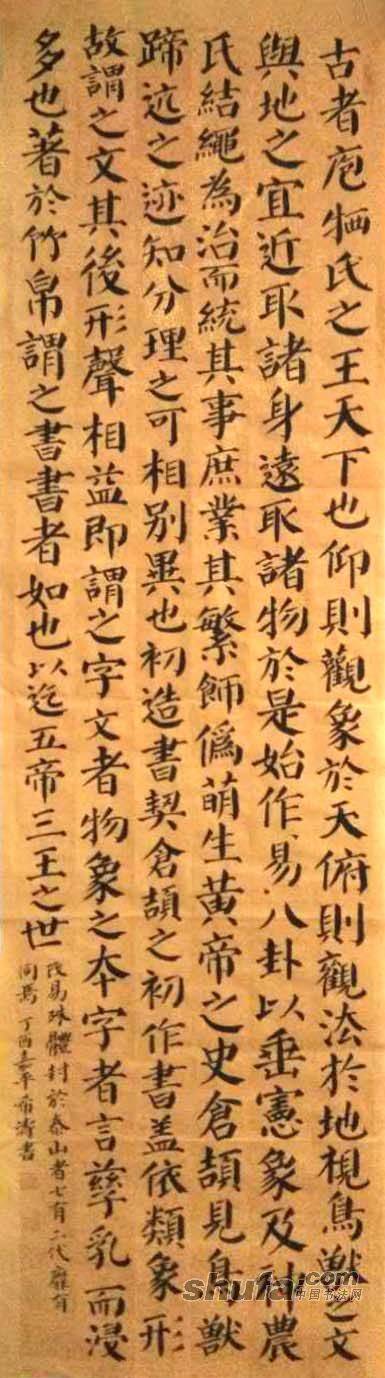 古者庖犧氏之王天下也仰則觀象於天俯則觀法於地視鳥獸之文
與地之宜近取諸身遠取諸物於是始作易八卦以垂憲象及神農
氏結繩為治而統其事庶業其繁飾偽萌生黃帝之史倉頡見鳥獸
蹄迒之迹知分理之可相別異也初造書契倉頡之初作書蓋依類象形
故謂之文其後形聲相益即謂之字文者物象之本字者言孳乳而浸
多也著於竹帛謂之書書者如也以迄五帝三王之世
改易殊體封於泰山者七有二代靡有
同焉丁酉嘉平希濤書
shufai.com
中国书法网